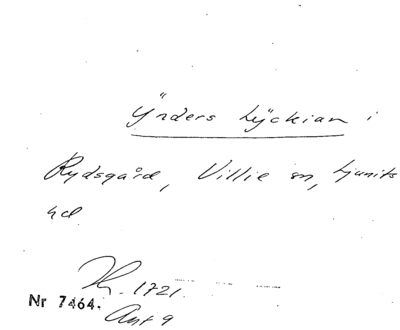 Ÿnders Lÿckian i
Rydsgård, Villie sn, Ljunits
hd
Lh. 1721.
Nr 7464.
Ant 9